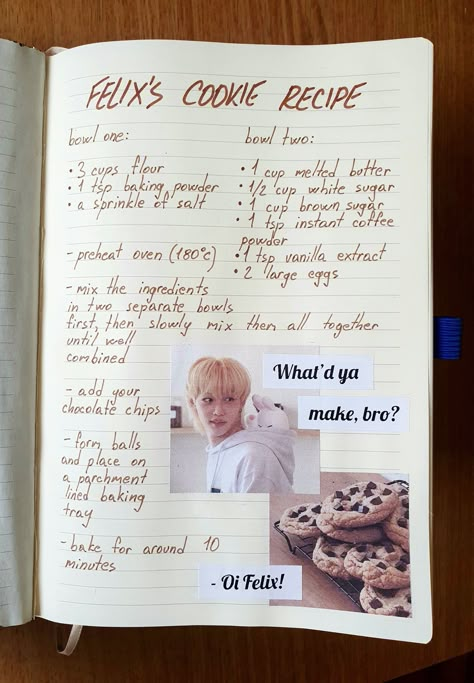 FELIX'S COOKIE RECIPE
bowl one:
• 3 cups flour
• 1 tsp baking powder
• a sprinkle of salt
bowl two:
• 1 cup melted butter
• 1/2 cup white sugar
• 1 cup brown sugar
• 1 tsp instant coffee
powder
• 1 tsp vanilla extract
• 2 large eggs
- preheat oven (180°c)
- mix the ingredients
in two separate bowls
first, then slowly mix them all together
until well
combined
- add your
chocolate chips
- form balls
and place on
a parchment
lined baking
tray
- bake for around 10
minutes
What'd ya
make, bro?
- Oi Felix!